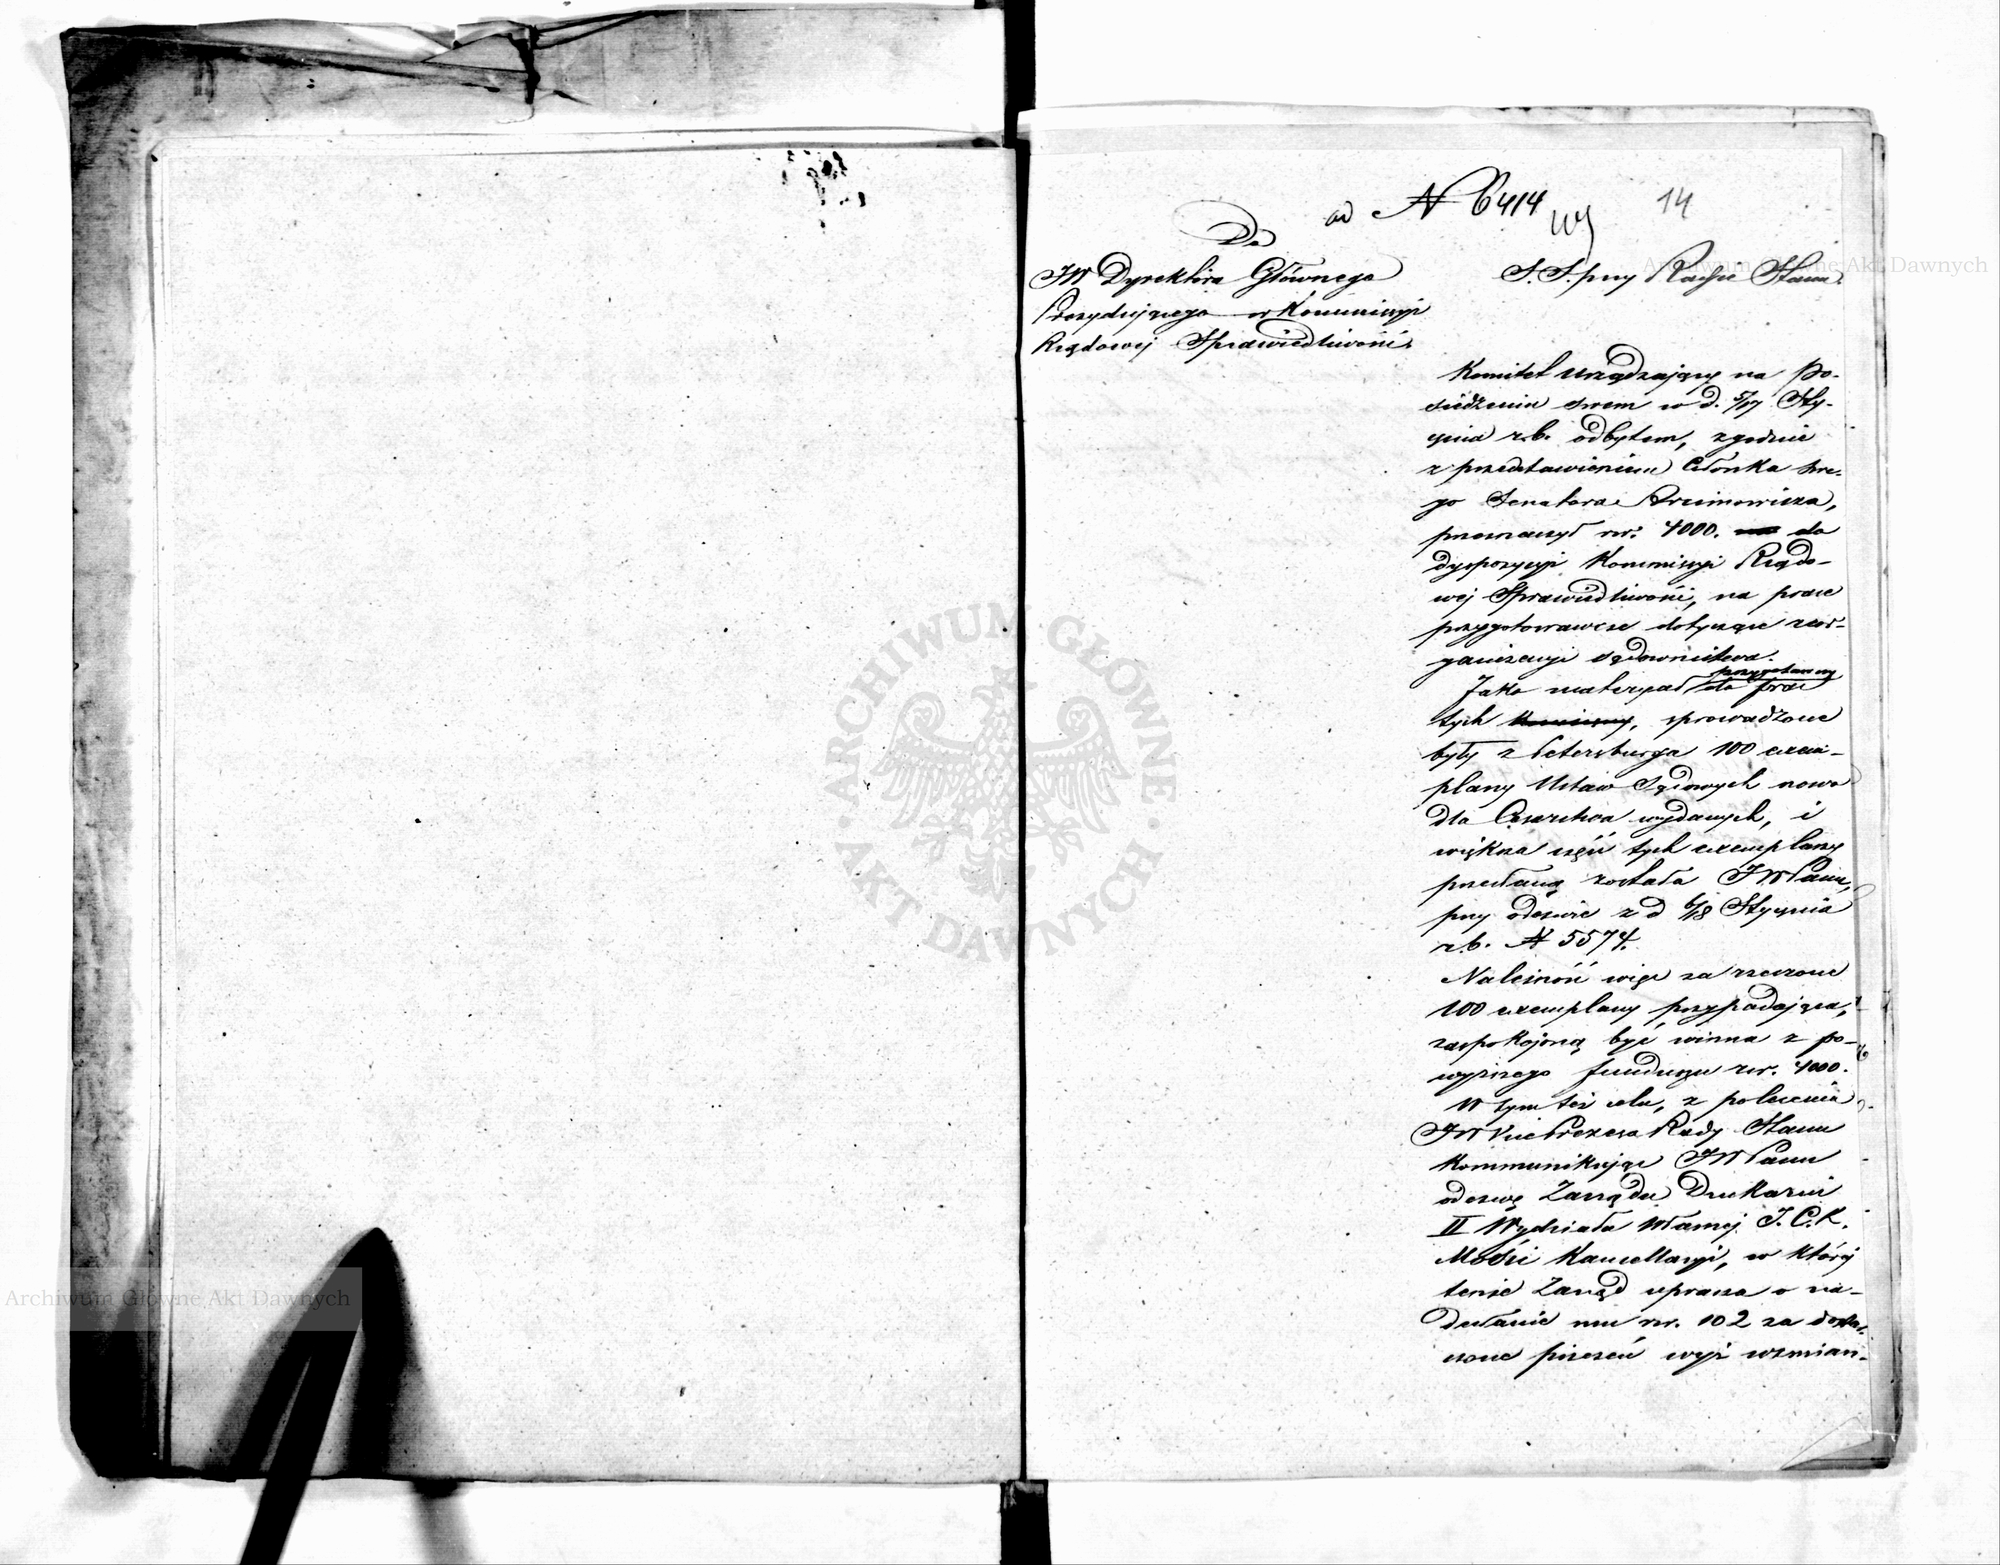 ad N 6414
14
Do
JW Dyrektora Głównego
Prezydującego w Kommissyi
Rządowej Sprawiedliwości.
S. S. przy Radzie Stanu.
Komitet Urządzający na po-
siedzeniu swem w d. 5/17 Sty-
cznia r.b. odbytem, zgodnie
z przedstawieniem Członka swe-
go Senatora Arcimowicza,
przeznaczył rsr. 4000. do
dyspozycyi Kommissyi Rządo-
wej Sprawiedliwości, na prace
przygotowawcze dotyczące reor-
ganizacyi sądownictwa.
przygotowawczy
Jako materyał do prac
tych, sprowadzone
były z Petersburga 100 exem-
plarzy Ustaw Sądowych nowo
dla Cesarstwa wydanych, i
większa część tych exemplarzy
przesłaną została JWPanu,
przy odezwie z d 6/18 Stycznia
r.b. N 5574.
Należność więc za rzeczone
100 exemplarzy przypadająca,
zaspokojoną być winna z po-
wyższego funduszu rsr. 4000.
W tym też celu, z polecenia
JW Vice Prezesa Rady Stanu
kommunikując JWPanu
odezwę Zarządu Drukarni
II Wydziału Własnej J. C. K.
Mości Kancellaryi, w której
tenże Zarząd uprasza o na-
desłanie mu rsr. 102 za dostar-
czone przezeń wyż wzmian-
ARCHIWUM GŁÓWNE
AKT DAWNYCH
Archiwum Główne Akt Dawnych
Archiwum Główne Akt Dawnych